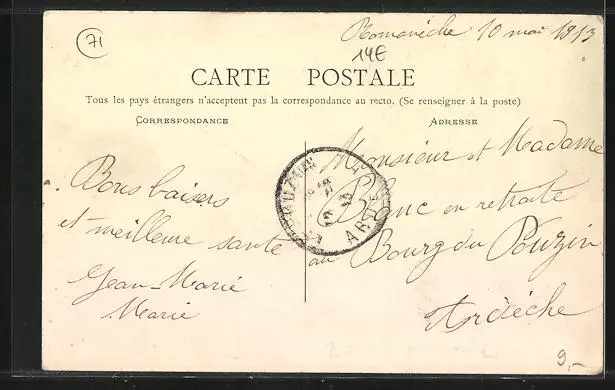 71
Romanèche 10 mai 1913
14E
CARTE POSTALE
Tous les pays étrangers n'acceptent pas la correspondance au recto. (Se renseigner à la poste)
CORRESPONDANCE
ADRESSE
Bons baisers
et meilleure santé
Jean-Marie
Marie
Monsieur et Madame
Blanc en retraite
au Bourg du Pouzin
Ardèche
9,-